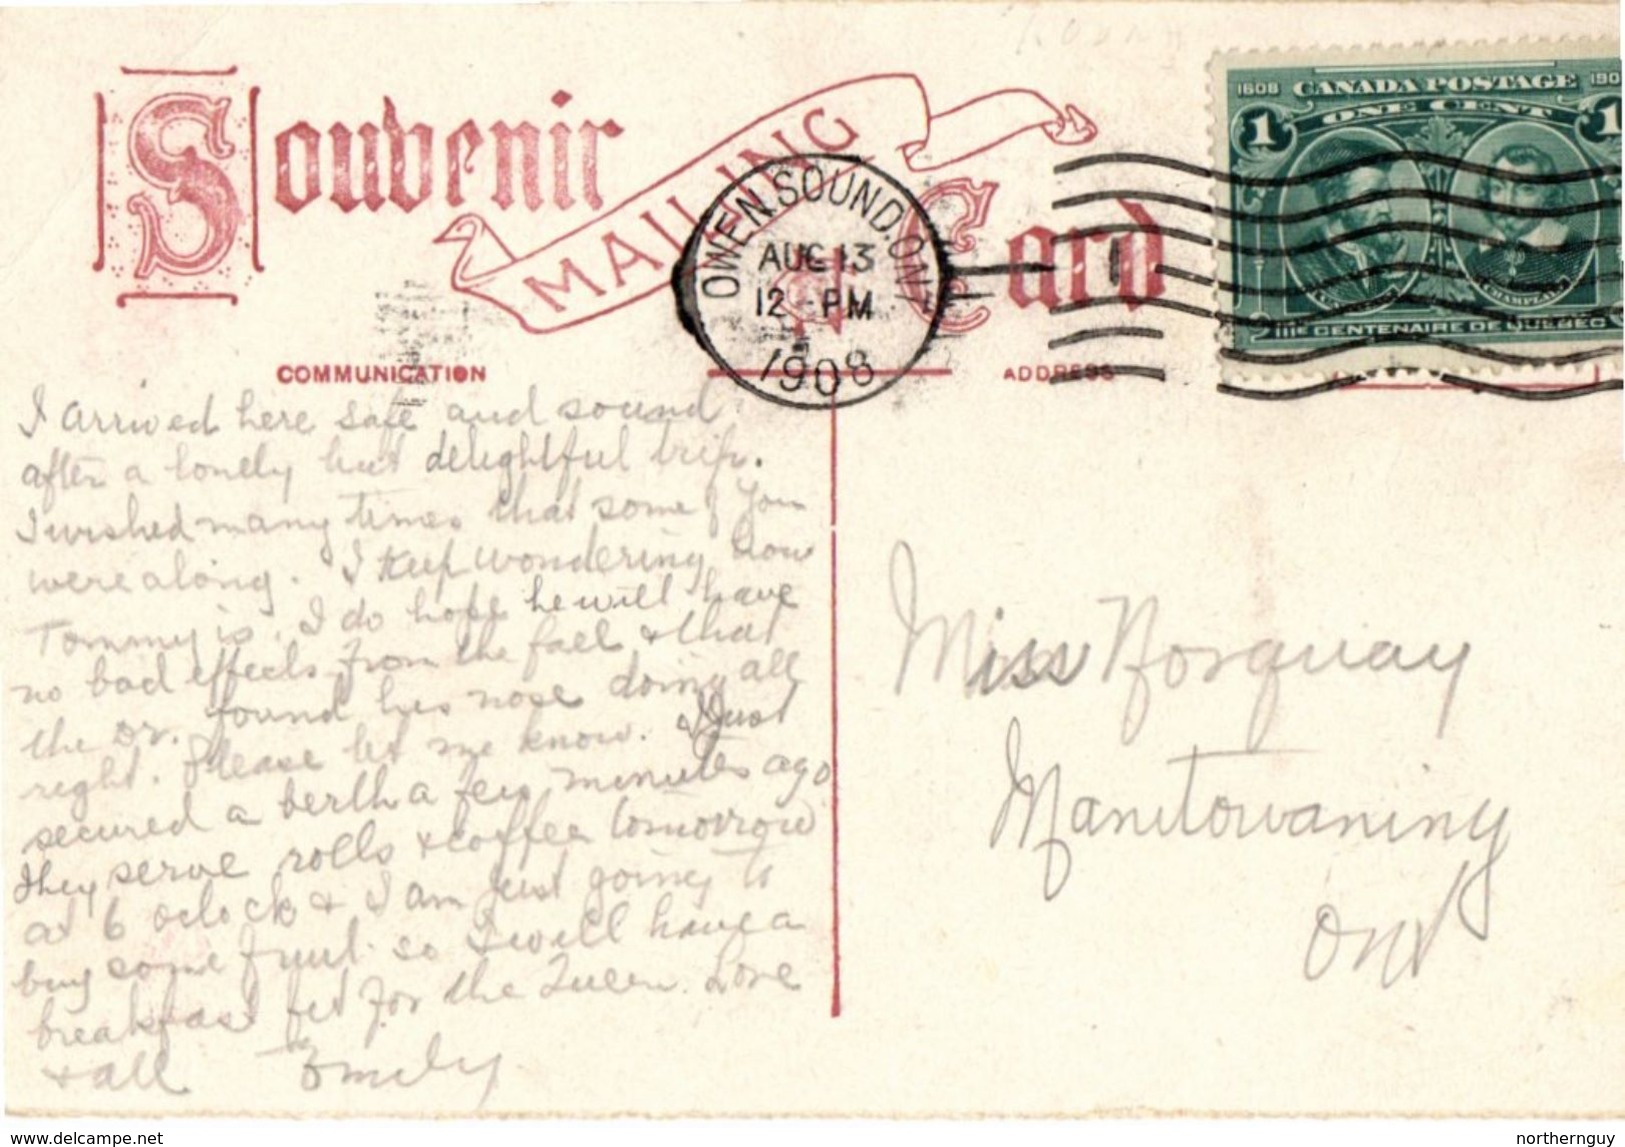 Souvenir
MAILING
Card
OWEN SOUND. ONT
AUG 13
12 - PM
1908
1608 CANADA POSTAGE 190
ONE CENT
1 1
CHAMPLAIN
3me CENTENAIRE DE QUEBEC
COMMUNICATION
ADDRESS
I arrived here safe and sound
after a lonely but delightful trip.
I wished many times that some of you
were along. I keep wondering how
Tommy is. I do hope he will have
no bad effects from the fall & that
the Dr. found his nose doing all
right. Please let me know. Just
secured a berth a few minutes ago
They serve rolls & coffee tomorrow
at 6 oclock & I am just going to
buy some fruit so I will have a
breakfast fit for the Queen. Love
to all Emily
Miss
Manitowaning
Ont
www.delcampe.net
northernguy